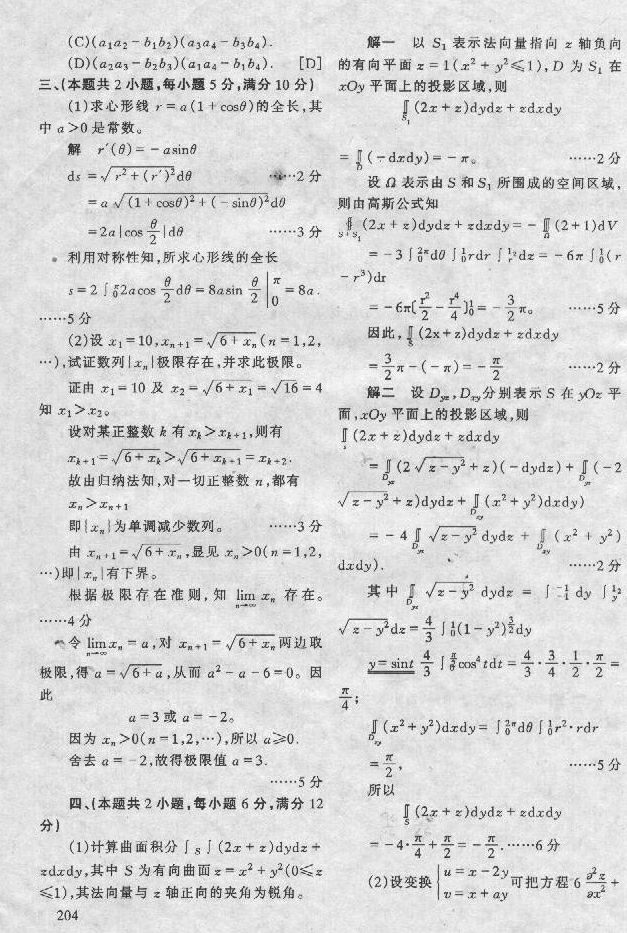 (C)(a₁a₂-b₁b₂)(a₃a₄-b₃b₄).
(D)(a₂a₃-b₂b₃)(a₁a₄-b₁b₄). [D]
三、(本题共2小题,每小题5分,满分10分)
(1)求心形线 r=a(1+cosθ)的全长,其
中 a>0是常数。
解 r′(θ)=-asinθ
ds=√(r²+(r′)²)dθ ……2分
=a√((1+cosθ)²+(-sinθ)²)dθ
=2a|cos θ/2|dθ ……3分
利用对称性知,所求心形线的全长
s=2∫₀^π 2acos θ/2 dθ=8asin θ/2 |₀^π=8a.
……5分
(2)设 x₁=10,xₙ₊₁=√(6+xₙ)(n=1,2,
…),试证数列{xₙ}极限存在,并求此极限。
证由 x₁=10 及 x₂=√(6+x₁)=√16=4
知 x₁>x₂。
设对某正整数 k 有 xₖ>xₖ₊₁,则有
xₖ₊₁=√(6+xₖ)>√(6+xₖ₊₁)=xₖ₊₂.
故由归纳法知,对一切正整数 n,都有
xₙ>xₙ₊₁
即{xₙ}为单调减少数列。 ……3分
由 xₙ₊₁=√(6+xₙ),显见 xₙ>0(n=1,2,
…)即{xₙ}有下界。
根据极限存在准则,知 lim(n→∞) xₙ 存在。
……4分
令 lim(n→∞) xₙ=a,对 xₙ₊₁=√(6+xₙ)两边取
极限,得 a=√(6+a),从而 a²-a-6=0。因
此
a=3或 a=-2。
因为 xₙ>0(n=1,2,…),所以 a≥0.
舍去 a=-2,故得极限值 a=3.
……5分
四、(本题共2小题,每小题6分,满分12
分)
(1)计算曲面积分∫s∫(2x+z)dydz+
zdxdy,其中 S 为有向曲面 z=x²+y²(0≤z
≤1),其法向量与 z 轴正向的夹角为锐角。
204
解一 以 S₁ 表示法向量指向 z 轴负向
的有向平面 z=1(x²+y²≤1),D 为 S₁ 在
xOy 平面上的投影区域,则
∬_S₁(2x+z)dydz+zdxdy
=∬_D(-dxdy)=-π。 ……2分
设 Ω 表示由 S 和 S₁ 所围成的空间区域,
则由高斯公式知
∯_S+S₁(2x+z)dydz+zdxdy=-∭_Ω(2+1)dV
=-3∫₀^2π dθ∫₀¹rdr∫_r²^1 dz=-6π∫₀¹(r
-r³)dr
=-6π(r²/2-r⁴/4)|₀¹=-3/2π。 ……5分
因此,∬_S(2x+z)dydz+zdxdy
=3/2π-(-π)=-π/2 ……2分
解二 设 D_yz,D_xy分别表示 S 在 yOz 平
面,xOy 平面上的投影区域,则
∬_s(2x+z)dydz+zdxdy
=∬_Dyz(2√(z-y²)+z)(-dydz)+∬_Dyz(-2
√(z-y²)+z)dydz+∬_Dxy(x²+y²)dxdy)
=-4∬_Dyz√(z-y²)dydz+∬_Dxy(x²+y²)
dxdy). ……2分
其中∬_Dyz√(z-y²)dydz=∫₋₁¹dy∫_y²^1
√(z-y²)dz=4/3∫₀¹(1-y²)^(3/2)dy
y=sint 4/3∫₀^(π/2)cos⁴tdt=4/3·3/4·1/2·π/2=
π/4;
∬_Dxy(x²+y²)dxdy=∫₀^2π dθ∫₀¹r²·rdr
=π/2, ……5分
所以
∬_S(2x+z)dydz+zdxdy
=-4·π/4+π/2=-π/2.……6分
(2)设变换{u=x-2y v=x+ay 可把方程6 ∂²z/∂x²+